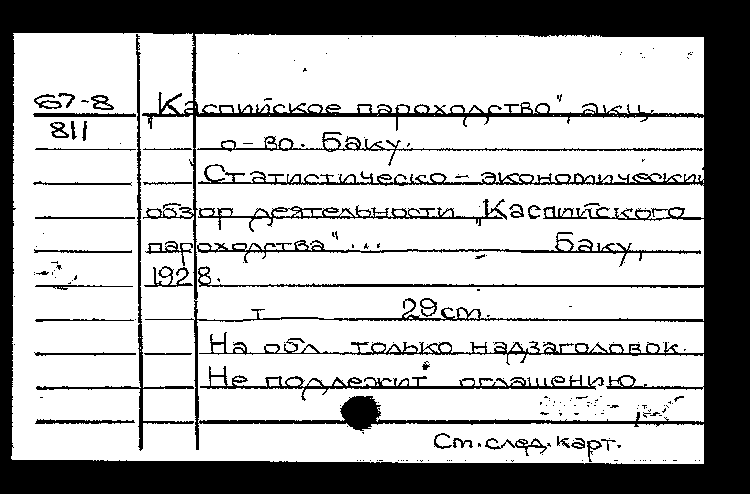 67-8 „Каспийское пароходство", акц.
811 о-во. Баку.
Статистическо-экономический
обзор деятельности „Каспийского
пароходства"... Баку,
1928.
т 29 cm.
На обл. только надзаголовок.
Не подлежит оглашению.
См. след. карт.